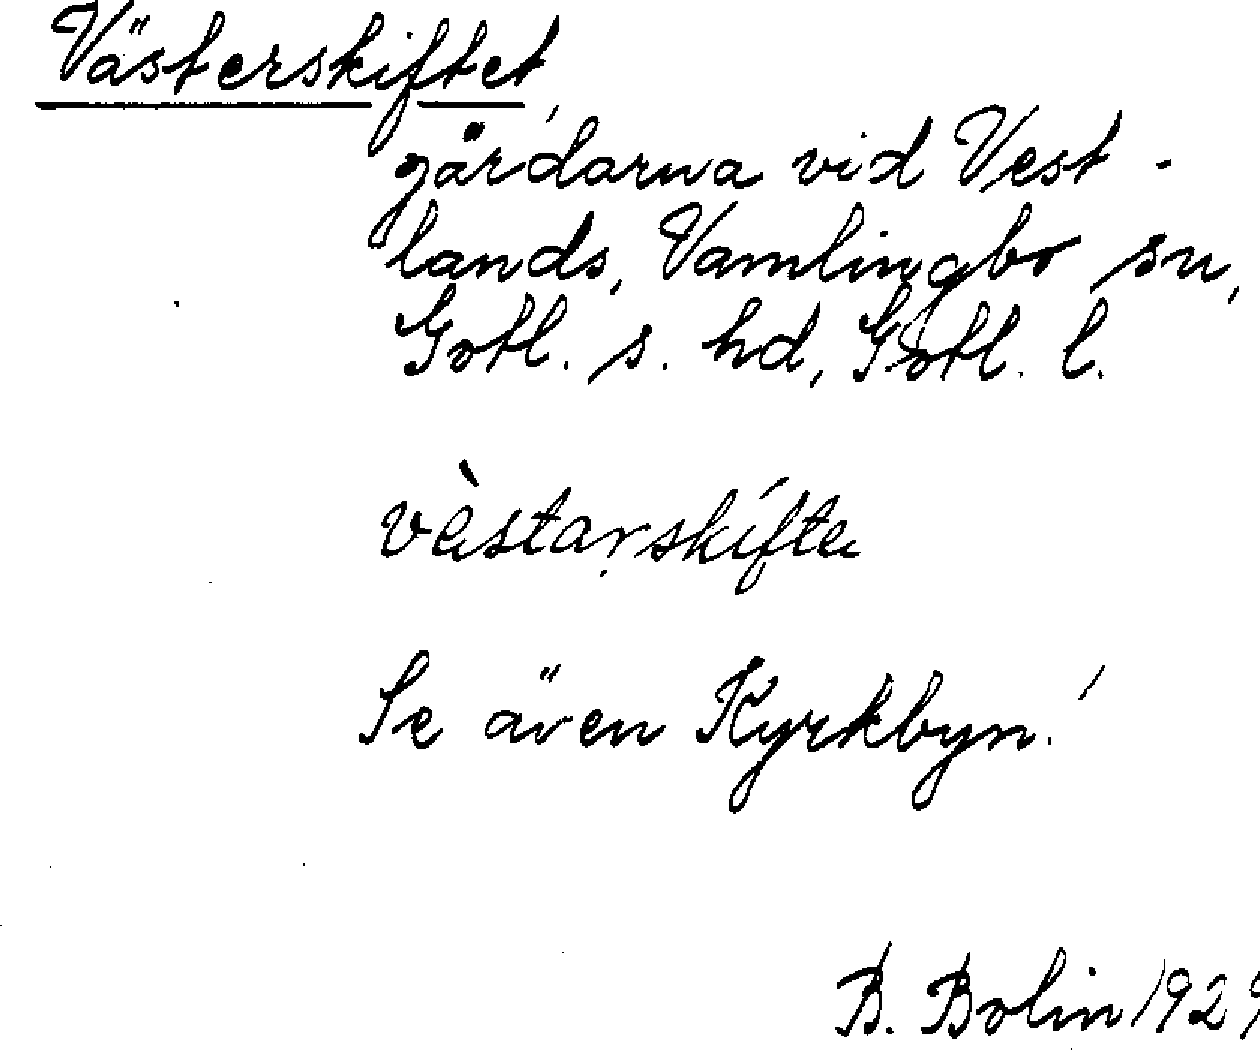 Västerskiftet,
gårdarna vid Vest-
lands, Vamlingbo sn,
Gotl. s. hd, Gotl. l.
vèstarskífte
Se även Kyrkbyn!
B. Bolin 1929